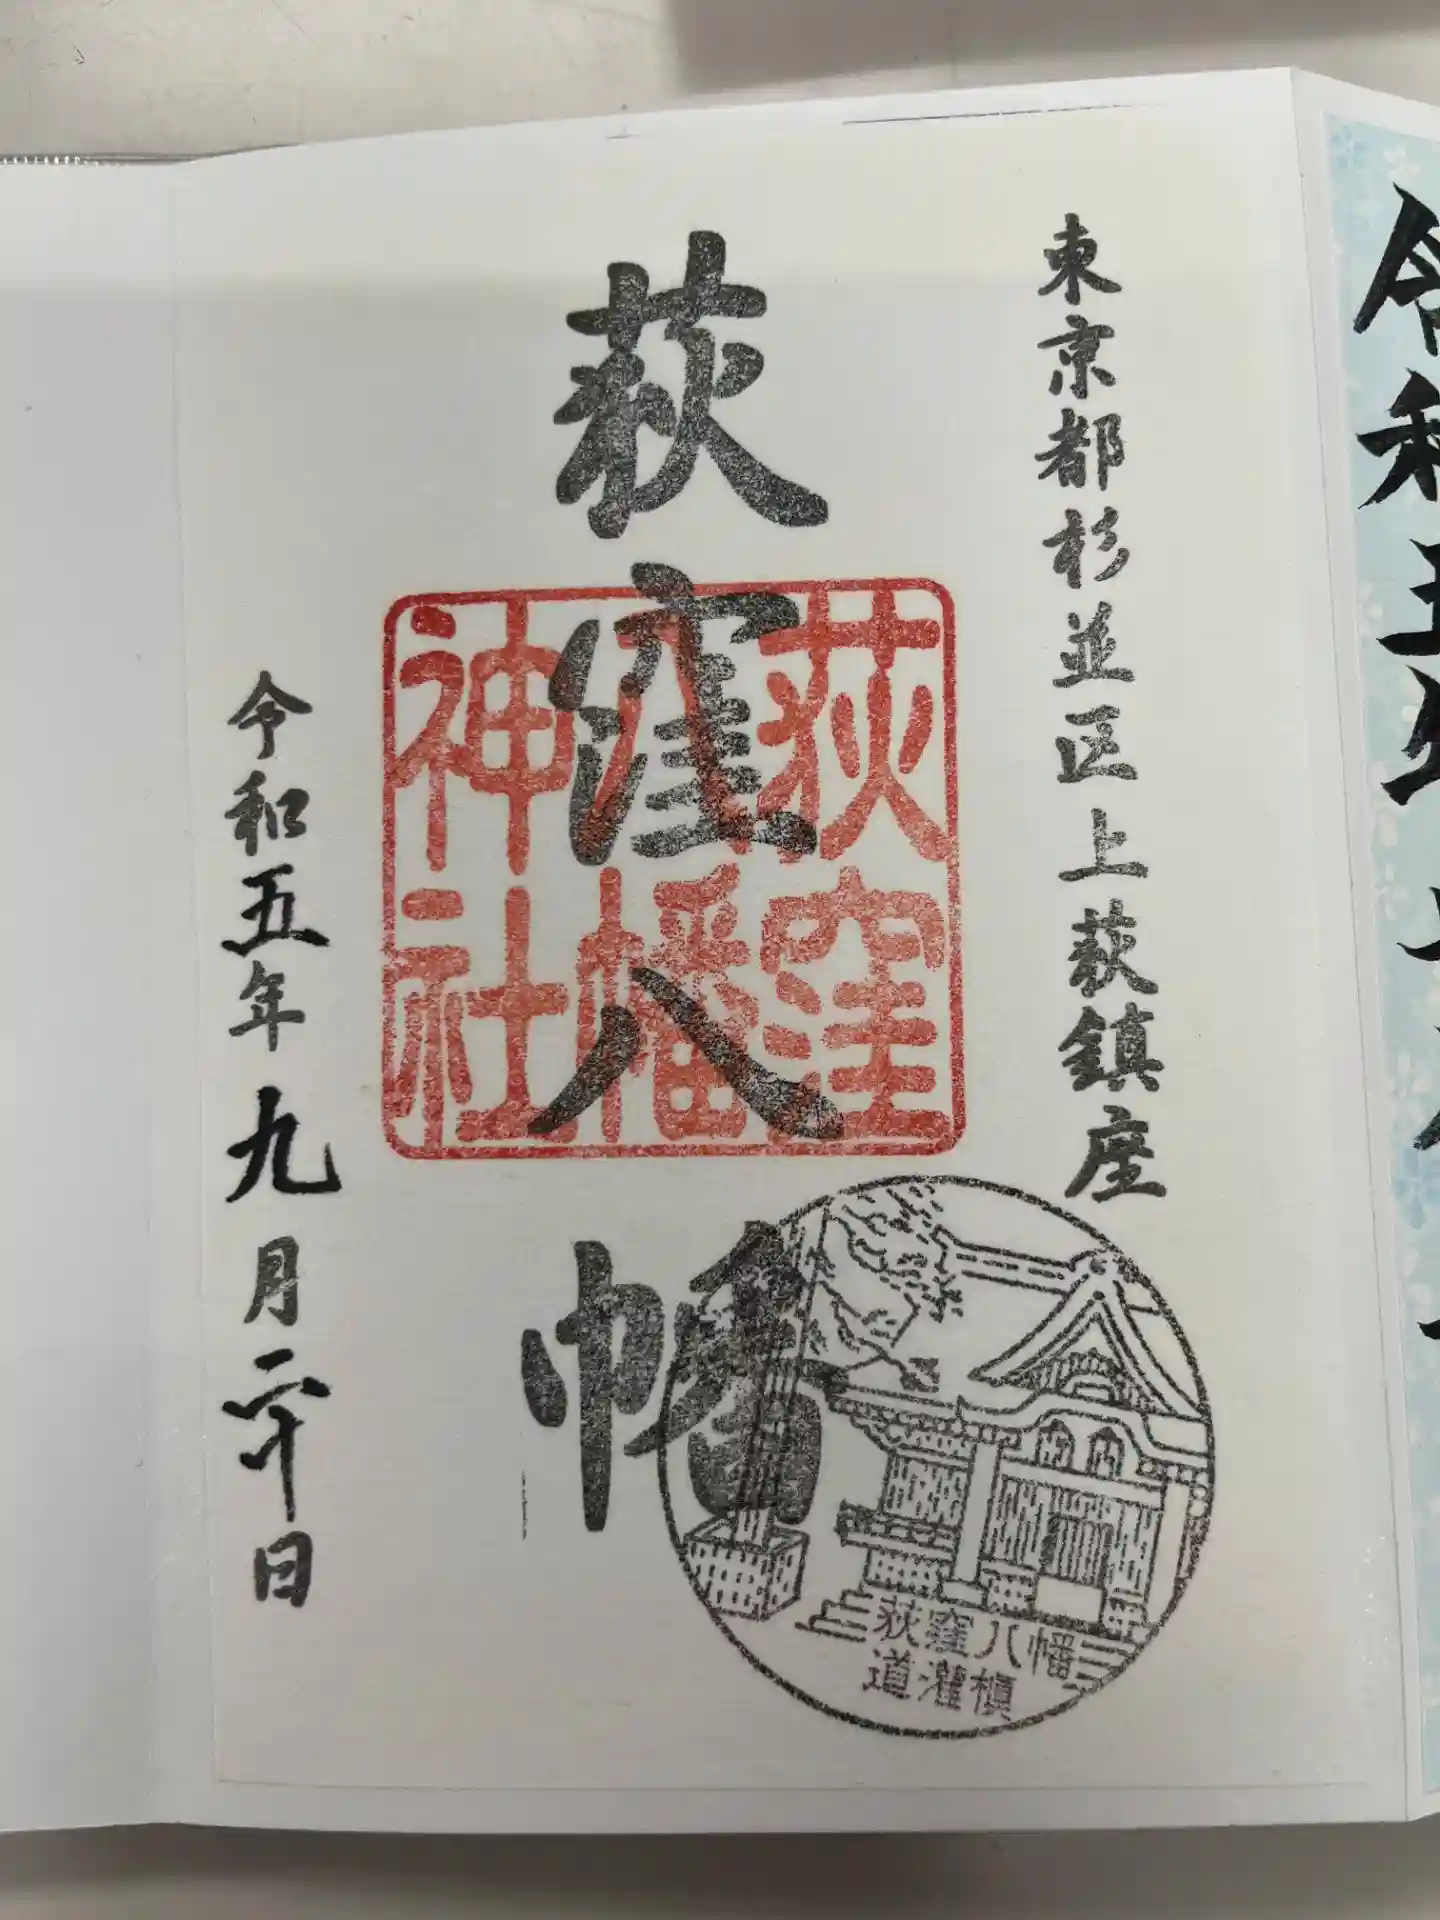 令和五年
東京都杉並区上荻鎮座
荻窪八幡
荻窪
八幡
神社
荻窪八幡
道灌槇
令和五年九月二十日